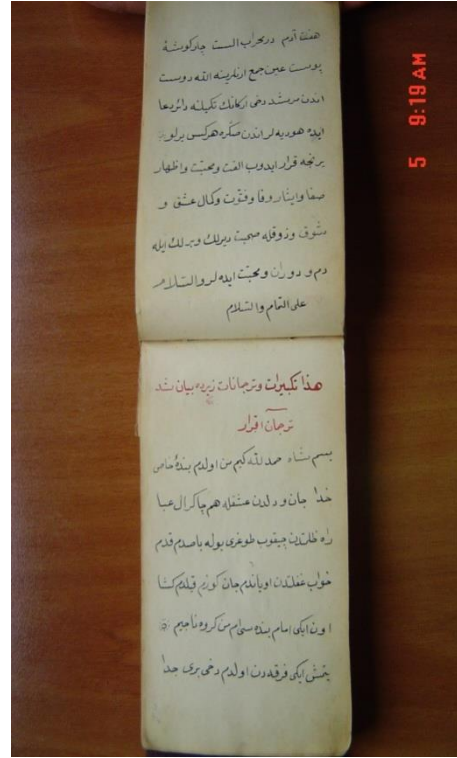 هفت آدم در محراب الست چار کوشۀ
پوست عین جمع ارنلرینه الله دوست
اندن مرشد دخی ارکانك تکبیلنه دائر دعا
ایده هو دیه لر اندن صکره هرکس یرلو یر
یرنجه قرار ایدوب الفت ومحبّت واظهار
صفا وایثار وفا وفتوّت وکمال عشق و
شوق وذوقله صحبت دیرلك وبرلك ایله
دم و دوران ومحبّت ایده لر والسّلام
علی التمام والسّلام
هذا تکبیرات وترجمانات زیرده بیان شد
ترجمان اقرار
بسم شاه حمد لله کیم من اولدم بندۀ خاص
خدا جان و دلدن عشقله هم چاکر ال عبا
راه ظلمتدن چیقوب طوغری یوله باصدم قدم
خواب غفلتدن اویاندم جان کوزم قیلدم کشا
اون ایکی امام بنده سی ام من کروه ناجیم
یتمش ایکی فرقه دن اولدم دخی بری جدا
5 9:19 AM